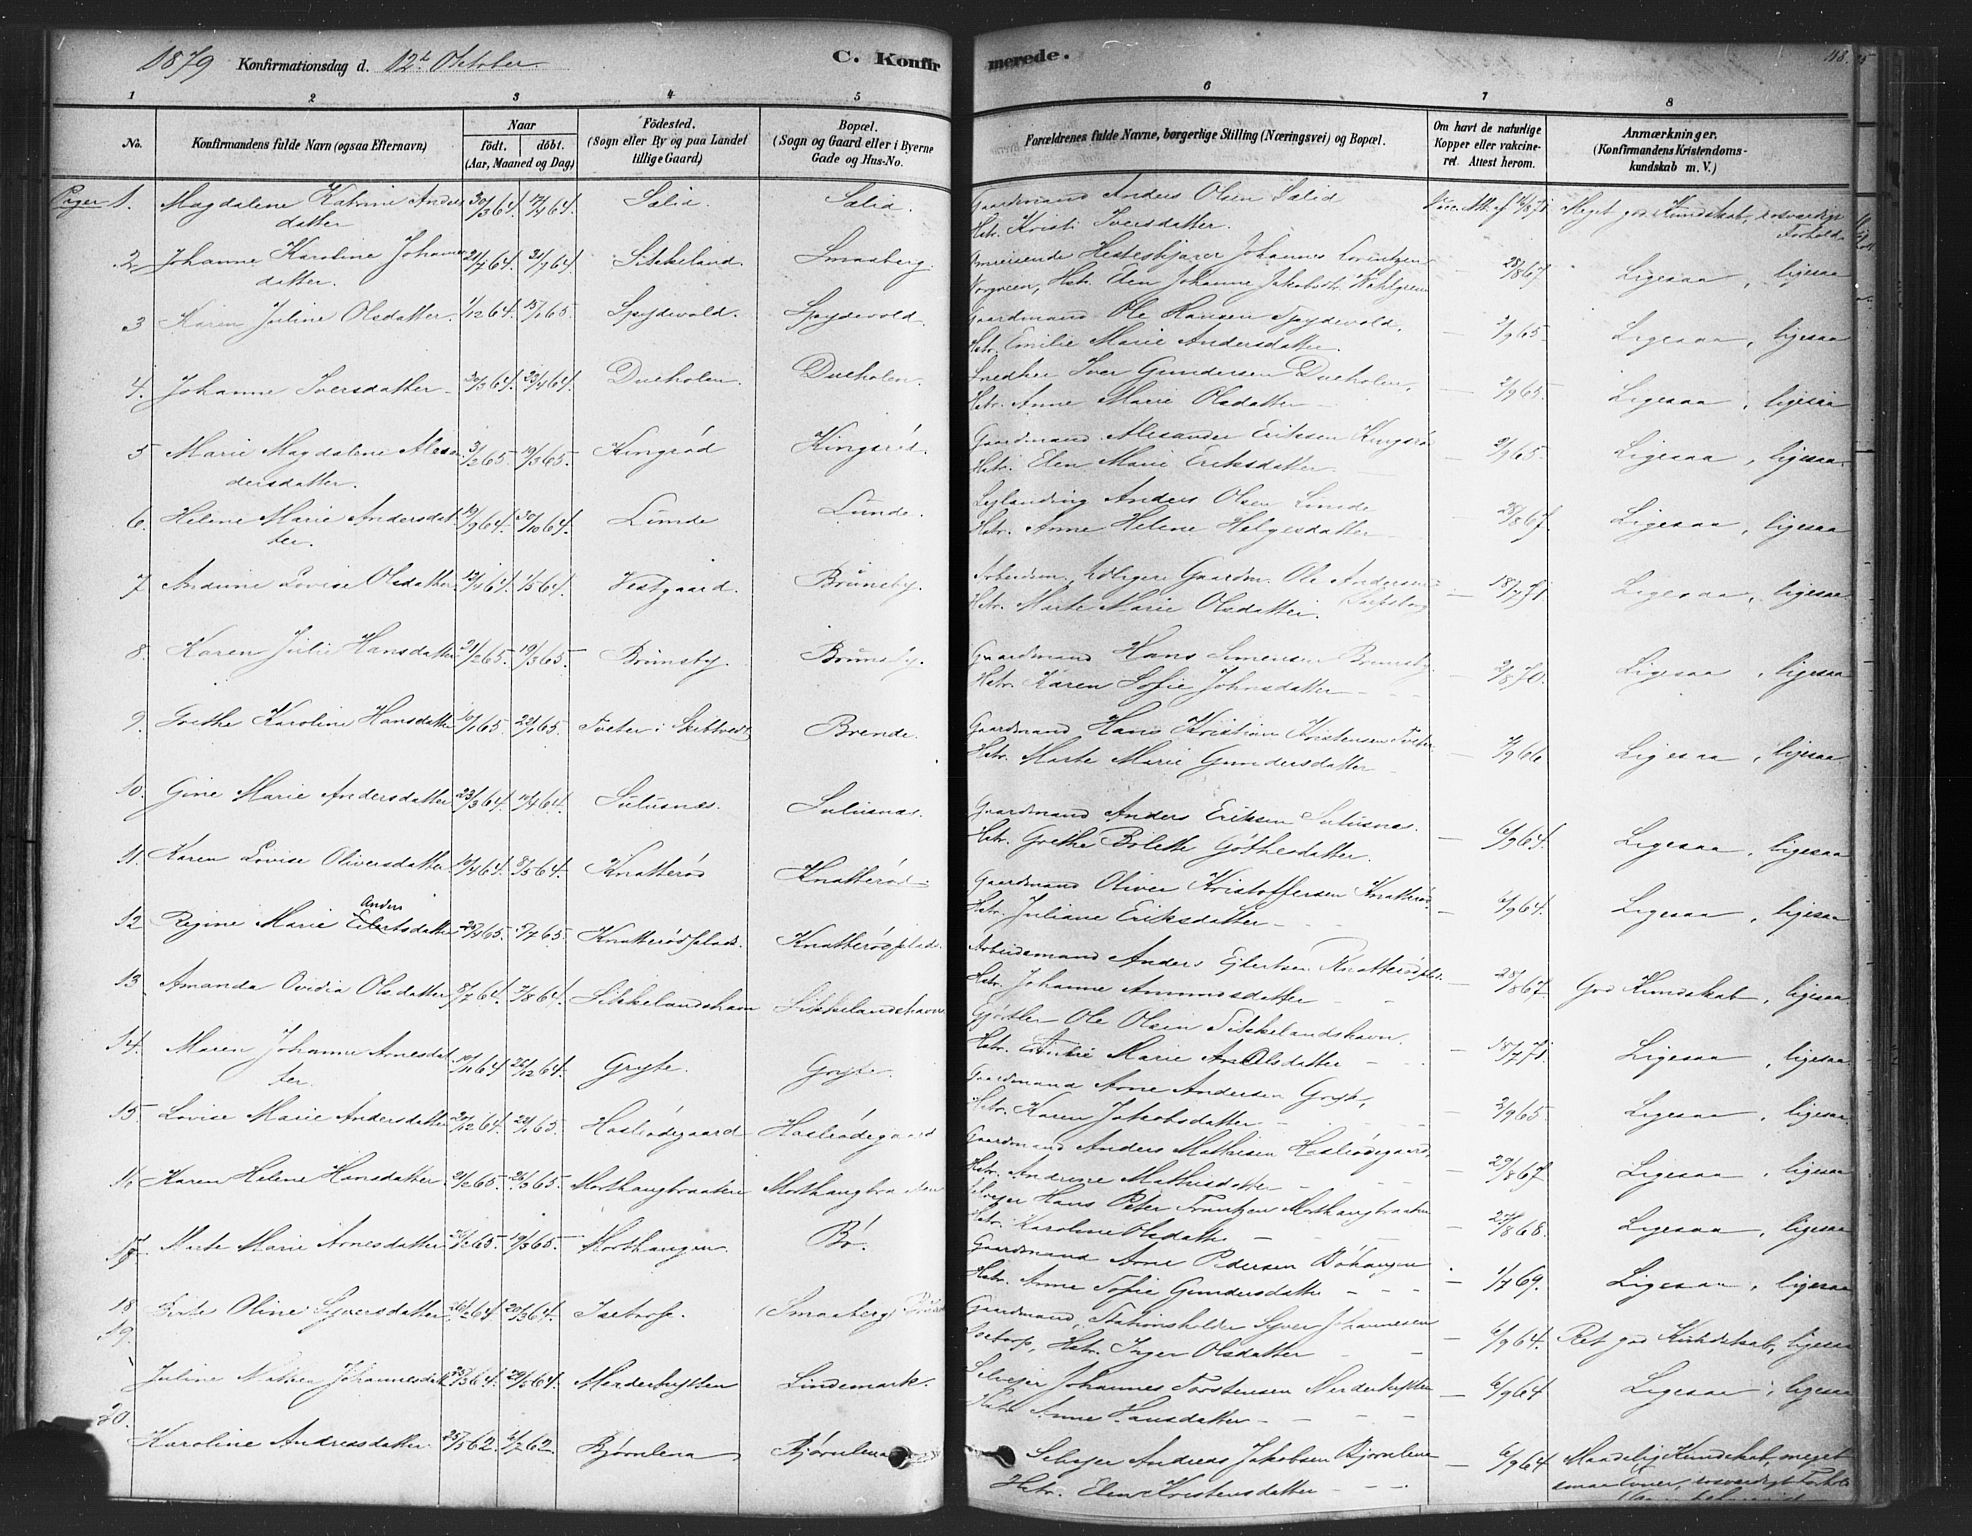 1879 Konfirmationsdag d. 12te Oktober C. Konfirmerede. 118.
1 2 3 4 5 6 7 8
No. Konfirmandens fulde Navn (ogsaa Efternavn) Naar födt. döbt. (Aar, Maaned og Dag) Födested. (Sogn eller By og paa Landet tillige Gaard) Bopæl. (Sogn og Gaard eller i Byerne Gade og Hus-No. Forældrenes fulde Navne, borgerlige Stilling (Næringsvei) og Bopæl. Om havt de naturlige Kopper eller vakcineret. Attest herom. Anmærkninger. (Konfirmandens Kristendomskundskab m. V.)
Piger 1. Magdalene Katrine Anders 30/3 64. 17/4 64. Sælid. Sælid. Gaardmand Anders Olsen Sælid Meget god Kundskab, rosværdigt
datter Hstr. Kristi Iversdatter. Forhold
2. Johanne Karoline Johannes Sikkeland. Smaaberg. Omreisende Hesteskjærer Johannes Lorentzen 28/8 67. Ligesaa, ligesaa
datter. Norgreen, Hstr. Elen Johanne Jakobsdtr. Wahlgreen
3 Karen Juline Olsdatter. 1/12 64. 15/1 65. Spydevold. Spydevold. Gaardmand Ole Hansen Spydevold, 2/9 65. Ligesaa, ligesaa
Hstr. Emilie Marie Andersdatter.
4. Johanne Iversdatter 30/3 64. 23/4 64. Dueholen. Dueholen. Snedker Iver Gundersen Dueholen, 2/9 65. Ligesaa, ligesaa
Hstr. Anne Marie Olsdatter
5 Marie Magdalene Alexan 3/2 65. 19/3 65. Kingsrød Kingsrød. Gaardmand Alexander Eriksen Kingsrød 2/9 65. Ligesaa, ligesaa
dersdatter. Hstr. Elen Marie Eriksdatter
6. Helene Marie Andersdat 19/9 64. 30/10 64. Lunde Lunde. Leilænding Anders Olsen Lunde 28/8 67. Ligesaa, ligesaa
ter. Hstr. Anne Helene Helgesdatter
7 Andrine Lovise Olsdatter 12/4 64. 1/5 64. Vestgaard. Brunsby. Arbeidsm. tidligere Gaardm. Ole Andersen 18/7 71. Ligesaa, ligesaa
Hstr. Marte Marie Olsdatter.
8. Karen Julie Hansdatter 21/2 65. 19/3 65. Brunsby. Brunsby. Gaardmand Hans Simensen Brunsby 2/8 70. Ligesaa, ligesaa
Hstr. Karen Sofie Johnsdatter
9. Grethe Karoline Hansdatter 10/1 65. 22/1 65. Tveter i Skibtvedt Brende. Gaardmand Hans Kristian Kristensen Tveter 7/9 66 Ligesaa, ligesaa
Hstr. Marte Marie Gundersdatter
10. Gine Marie Andersdatter 23/3 64. 17/4 64. Sulusnæs. Sulusnæs. Gaardmand Anders Eriksen Sulusnæs. 6/9 64. Ligesaa, ligesaa
Hstr. Grethe Bolette Göthesdatter.
11. Karen Lovise Oliversdatter 10/4 64. 8/5 64. Knatterød Knatterød Gaardmand Oliver Kristoffersen Knatterød. 6/9 64. Ligesaa, ligesaa
Hstr. Juliane Eriksdatter
Anders
12 Regine Marie Eilertsdatter 65. 65. Knatterødplads. Knatterødplads. Arbeidsmand Anders Ejlertsen Knatterødplds 28/8 67. God Kundskab, ligesaa.
Hstr. Johanne Amundsdatter
13. Amanda Ovidia Olsdatter 8/7 64. 7/8 64. Sikkelandshavn Sikkelandshavn Gjörtler Ole Olsen Sikkelandshavn. 18/7 71. Ligesaa, ligesaa
Hstr. Marie Olsdatter
14. Maren Johanne Arnesdat 10/11 64 26/12 64. Gryte. Gryte. Gaardmand Arne Andersen Gryte, 2/9 65. Ligesaa, ligesaa
ter. Hstr. Karen Jakobsdatter
15. Lovise Marie Andersdatter 20/12 64. 22/1 65. Haslrødegaard Haslrødegaard Gaardmand Anders Mathisen Haslrødegaard 29/8 67 Ligesaa, ligesaa
Hstr. Andrine Mathisdatter
16 Karen Helene Hansdatter 21/2 65. 26/3 65. Morthaugbraaten Morthaugbraaten Selvejer Hans Peter Frantzen Morthaugbraaten 27/8 68. Ligesaa, ligesaa
Hstr. Karoline Olsdatter
17. Marte Marie Arnesdatter 65. 19/3 65. Morthaugen. Bö. Gaardmand Arne Pedersen Böhaugen 1/7 69. Ligesaa, ligesaa
Hstr. Anne Sofie Gundersdatter
18 Berte Oline Syversdatter 64. 20/3 64. Isetorp. (Smaaberg) Gaardmand, Stationsholder Syver Johannesen 6/9 64. Ret god Kundskab, ligesaa
Isetorp, Hstr. Inger Olsdatter
19. Juline Mathea Johannesdat 64. 64. Merderhytten Lindemark. Selvejer Johannes Torstensen Merderhytten 6/9 64 Ligesaa, ligesaa
Hstr. Anne Hansdatter
20. Karoline Andreasdatter. 25/5 62. 62. Bjørnlena Bjørnlena Selvejer Andreas Jakobsen Bjørnlene 6/9 64 Maadelig Kundskab, meget
Hstr. Elen Kristensdatter smaa Evner, rosværdigt Forhold